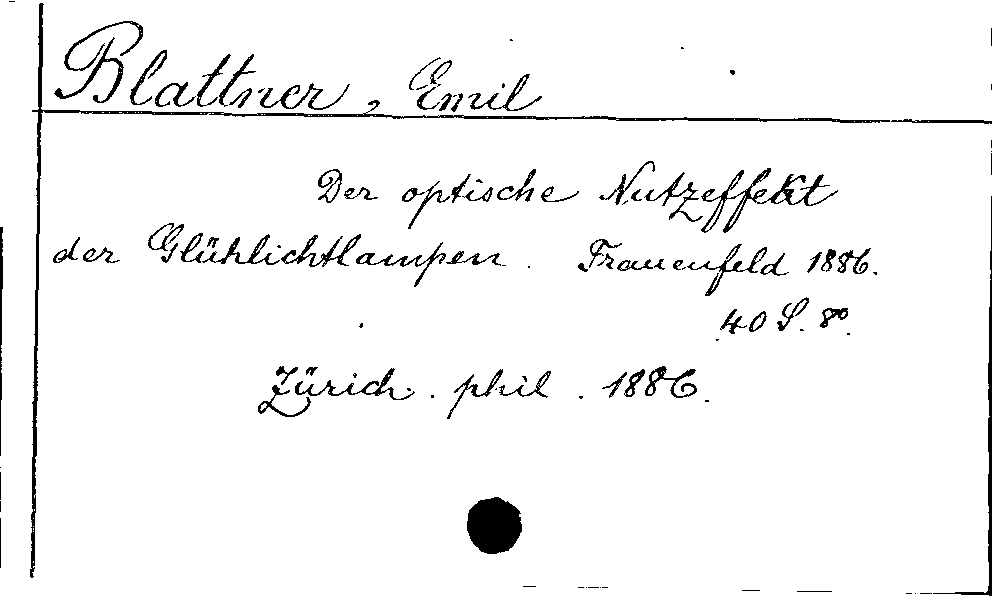 Blattner, Emil
Der optische Nutzeffekt
der Glühlichtlampen. Frauenfeld 1886.
40 S. 8°.
Zürich. phil. 1886.